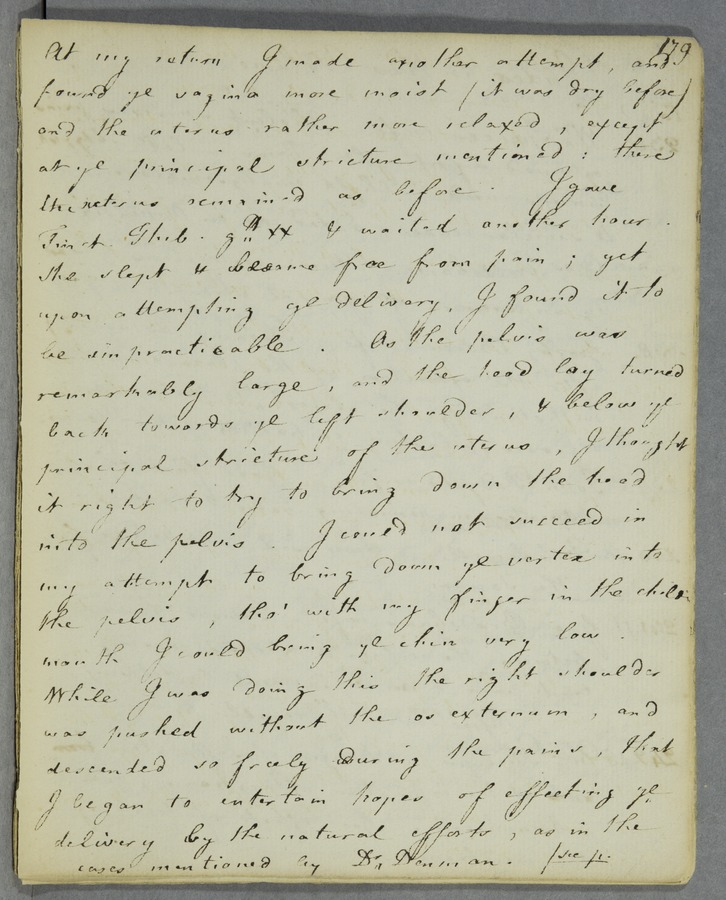 179
At my return I made another attempt, and
found ye vagina more moist (it was dry before)
and the uterus rather more relaxed, except
at ye principal stricture mentioned: there
the uterus remained as before. I gave
Tinct. Theb. gtt xx & waited another hour.
She slept & became free from pain; yet
upon attempting ye delivery, I found it to
be impracticable. As the pelvis was
remarkably large, and the head lay turned
back towards ye left shoulder, & below ye
principal stricture of the uterus, I thought
it right to try to bring down the head
into the pelvis. I could not succeed in
my attempt to bring down ye vertex into
the pelvis, tho' with my finger in the child's
mouth I could bring ye chin very low.
While I was doing this the right shoulder
was pushed without the os externum, and
descended so freely during the pains, that
I began to entertain hopes of effecting ye
delivery by the natural efforts, as in the
cases mentioned by Dr Denman. (see p.